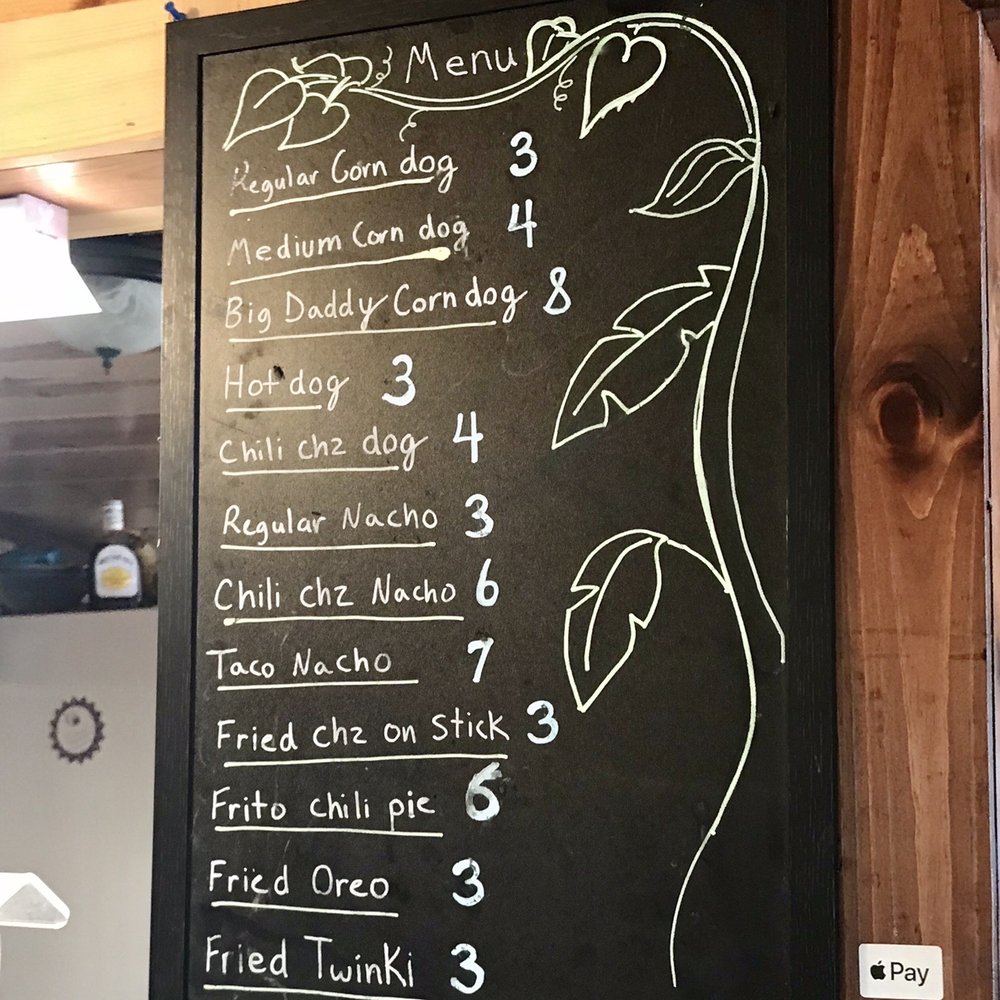 Menu
Regular Corn dog 3
Medium Corn dog 4
Big Daddy Corn dog 8
Hot dog 3
Chili chz dog 4
Regular Nacho 3
Chili chz Nacho 6
Taco Nacho 7
Fried chz on Stick 3
Frito chili pie 6
Fried Oreo 3
Fried TwinKi 3
Pay